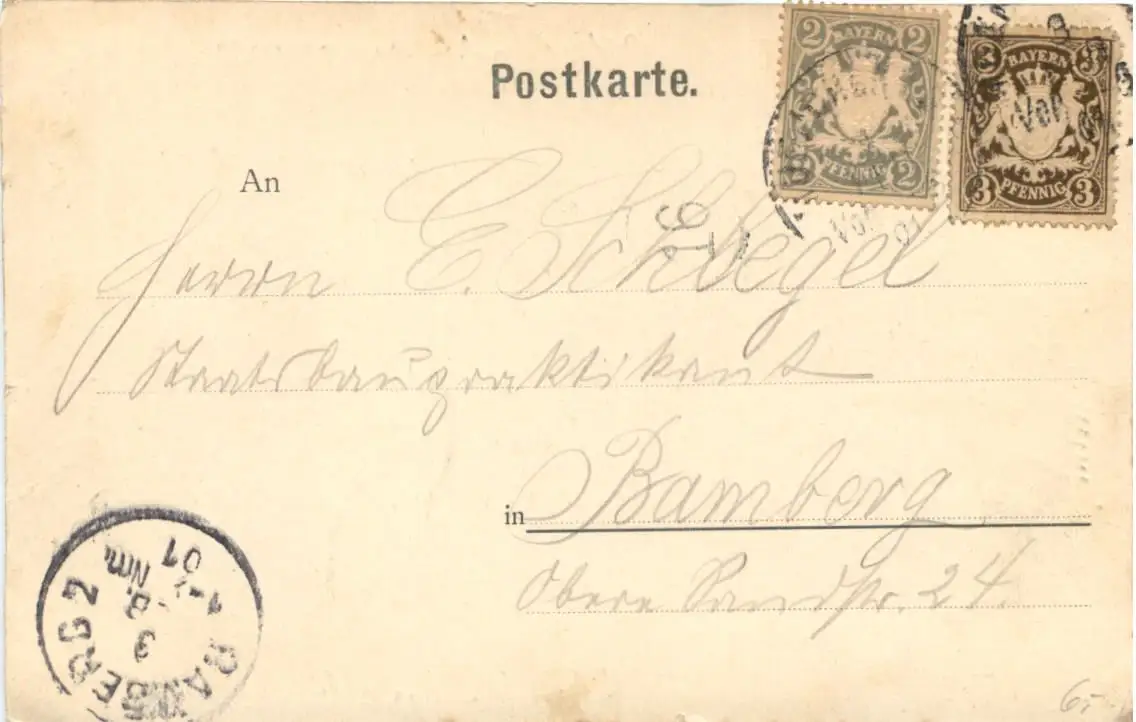 Postkarte.
2 BAYERN 2
PFENNIG 2
3 BAYERN 3
3 PFENNIG 3
Vor
Vor 01
An
Herrn E. Schlegel
Staatsbaupraktikant
in Bamberg
Obere Sandstr. 24.
BAMBERG 2
3
8
Nm.
01